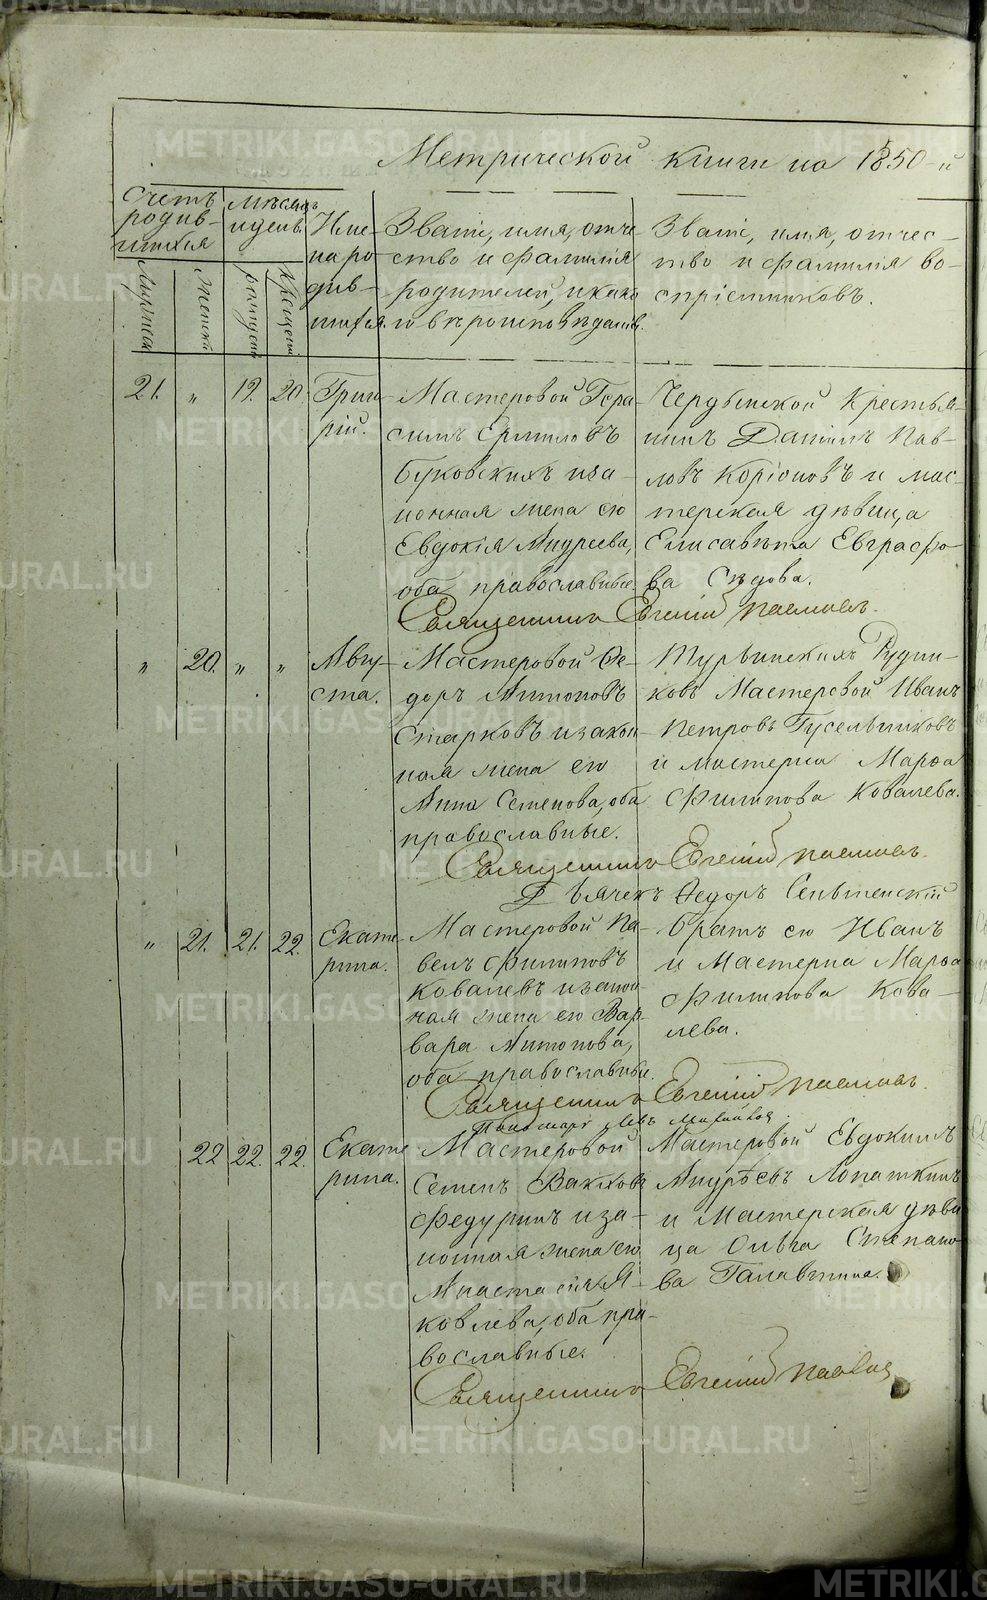 Метрической книги на 1850-й
Счетъ родив-шихся
Мѣсяцъ и день.
Име-на ро-див-шихся.
Званiе, имя, отче-
ство и фамилiя
родителей, и како-
го вѣроисповѣданiя.
Званiе, имя, отчес-
тво и фамилiя во-
спрiемниковъ.
Мужеска
Женска
рожденiя
крещенiя
21. „ 19. 20.
Григо-
рiй.
Мастеровой Гера-
симъ Ермиловъ
Буковскихъ и за-
конная жена его
Евдокiя Андреева,
оба православные
Чердынской Крестья-
нинъ Данiилъ Пав-
ловъ Корiоновъ и мас-
терская дѣвица
Елисавѣта Евграфо-
ва Сѣдова.
Священникъ Евгенiй
„ 20. „ „
Авгу-
ста.
Мастеровой Ѳе-
доръ Антоновъ
Старковъ и закон-
ная жена его
Анна Семенова, оба
православные.
Турьинскихъ Рудни-
ковъ Мастеровой Иванъ
Петровъ Гусельниковъ
и мастерша Марѳа
Филипова Ковалева.
Священникъ Евгенiй
Дьячекъ Ѳедоръ
„ 21. 21. 22.
Екате-
рина.
Мастеровой Па-
велъ Филиповъ
Ковалевъ и закон-
ная жена его Вар-
вара Антонова,
оба православные.
братъ его Иванъ
и Мастерша Марѳа
Филипова Кова-
лева.
Священникъ Евгенiй
Пономарь Левъ
22 22. 22.
Екате
рина.
Мастеровой
Семенъ
Федуринъ и за-
конная жена его
Анастасiя Я-
ковлева, оба пра-
вославные.
Мастеровой Евдокимъ
Андрѣевъ Лопаткинъ
и Мастерская дѣви
ца Ольга Степано-
ва
Священникъ Евгенiй
METRIKI.GASO-URAL.RU